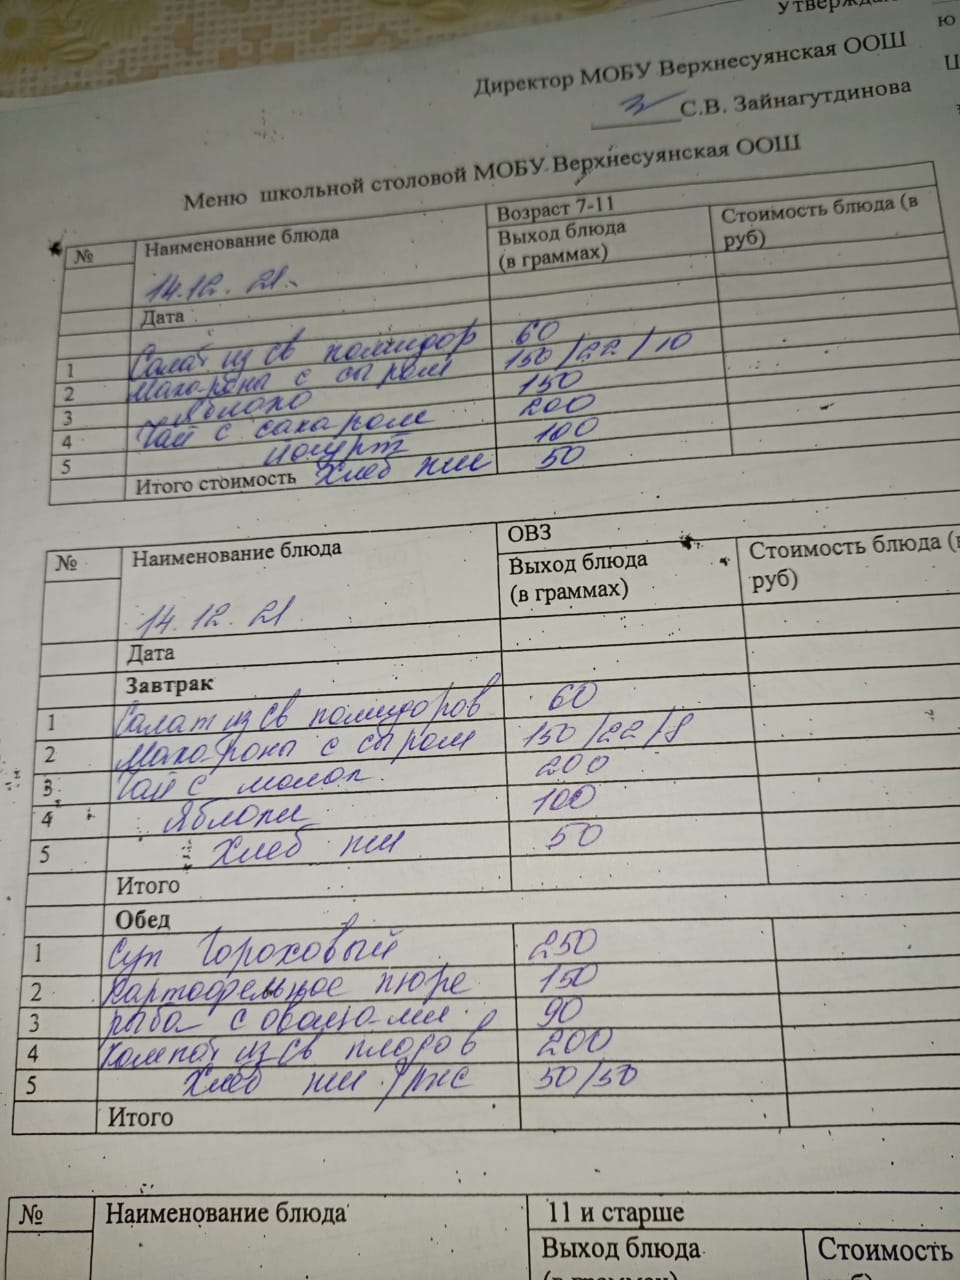 Утвержда
ю
Ц
Директор МОБУ Верхнесуянская ООШ
С.В. Зайнагутдинова
Меню школьной столовой МОБУ Верхнесуянская ООШ
№ Наименование блюда Возраст 7-11
Выход блюда (в граммах) Стоимость блюда (в руб)
14.12.21.
Дата
1 Салат из св помидор 60
2 Макароны с сыром 150/22/10
3 Яблоко 150
4 Чай с сахаром 200
5 йогурт 100
Итого стоимость Хлеб пш 50
№ Наименование блюда ОВЗ
Выход блюда (в граммах) Стоимость блюда (в руб)
14.12.21
Дата
Завтрак
1 Салат из св помидоров 60
2 Макароны с сыром 150/22/8
3 Чай с молок 200
4 Яблоки 100
5 Хлеб пш 50
Итого
Обед
1 Суп Гороховый 250
2 Картофельное пюре 150
3 рыба с овощами 90
4 Компот из св плодов 200
5 Хлеб пш/рж 50/50
Итого
№ Наименование блюда 11 и старше
Выход блюда Стоимость
(в граммах)